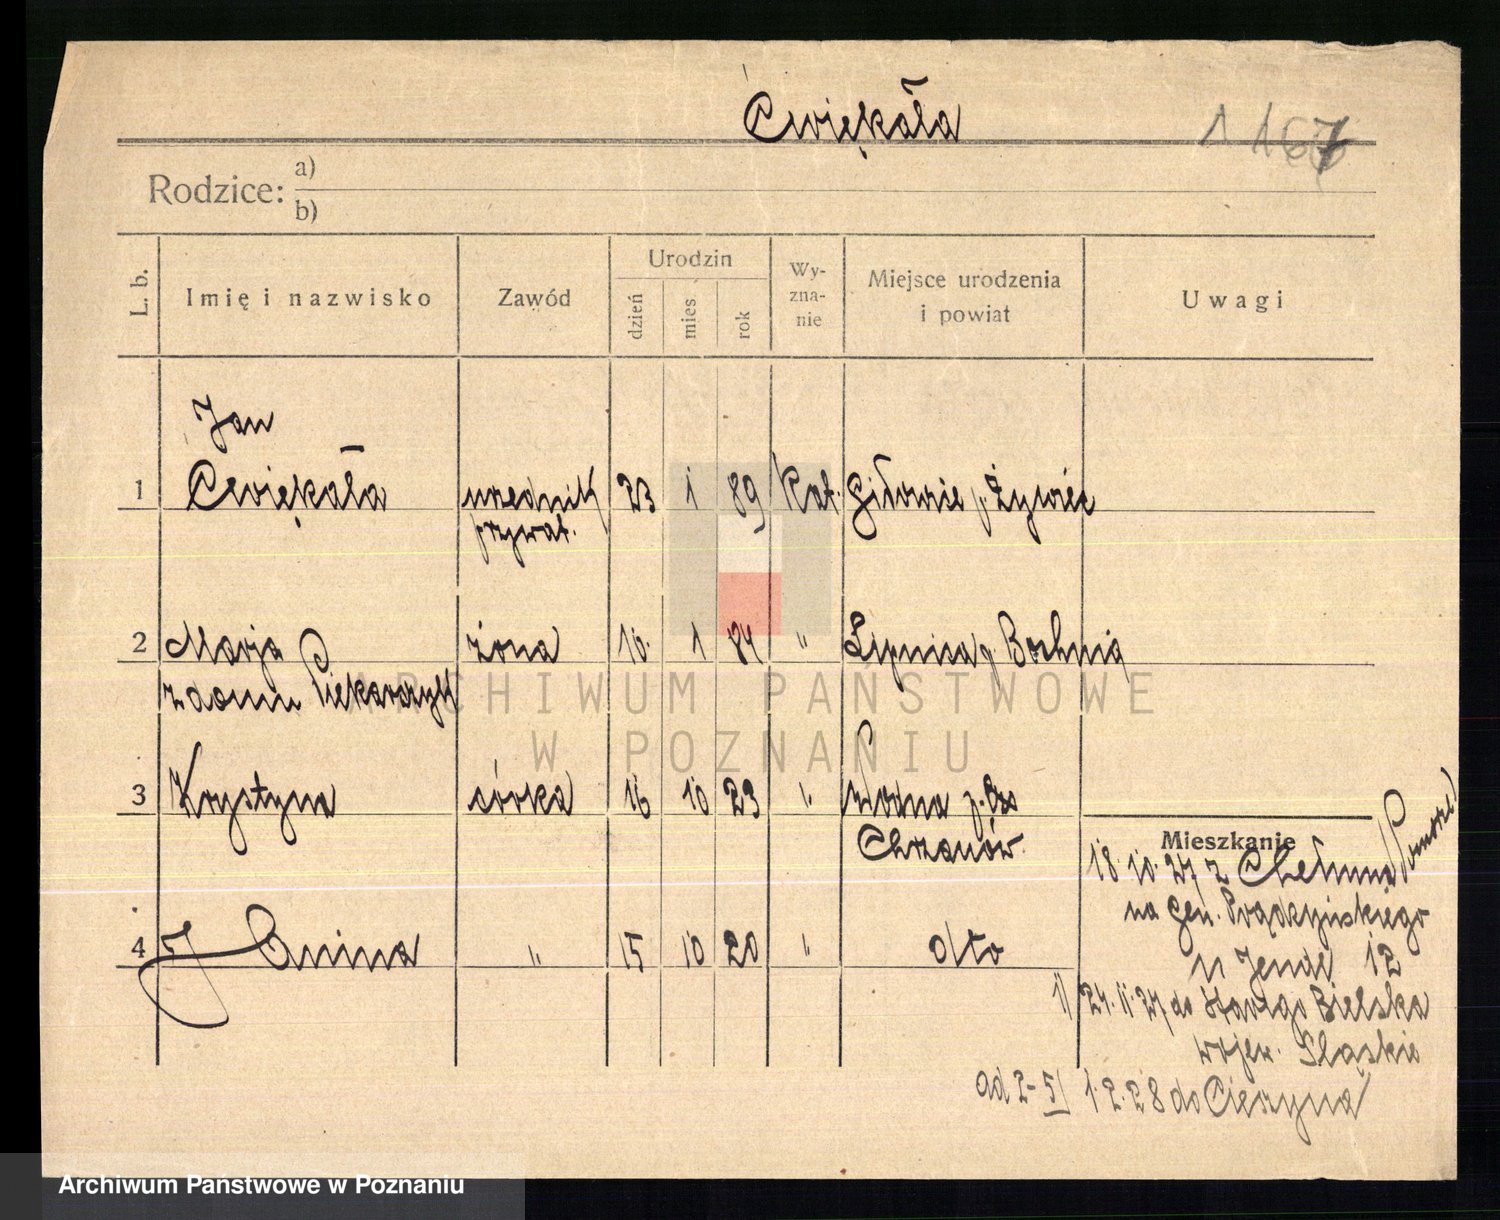 Ćwiękała
Rodzice: a)
b)
L. b.
Imię i nazwisko
Zawód
Urodzin
dzień
mies
rok
Wy-
zna-
nie
Miejsce urodzenia
i powiat
Uwagi
Jan
1 Ćwiękała urzednik 23 1 89 Kat. Gilowie p. Żywiec
prywat.
2 Marja żona 10. 1 84 " Lipnica p. Bochnia
z domu Piekarczyk
3 Krystyna córka 16 10 23 " Wodna p.
Chrzanów
4 Janina " 15 10 20 " dto
Mieszkanie
18.10.27 z Chełmna Pomorze
na Gen. Prądzyńskiego
u 12
1/ 24.11.27 do Starego Bielska
wojew. Śląskie
ad 2-5/ 1.2.28 do Cieszyna
ARCHIWUM PAŃSTWOWE
W POZNANIU
Archiwum Państwowe w Poznaniu